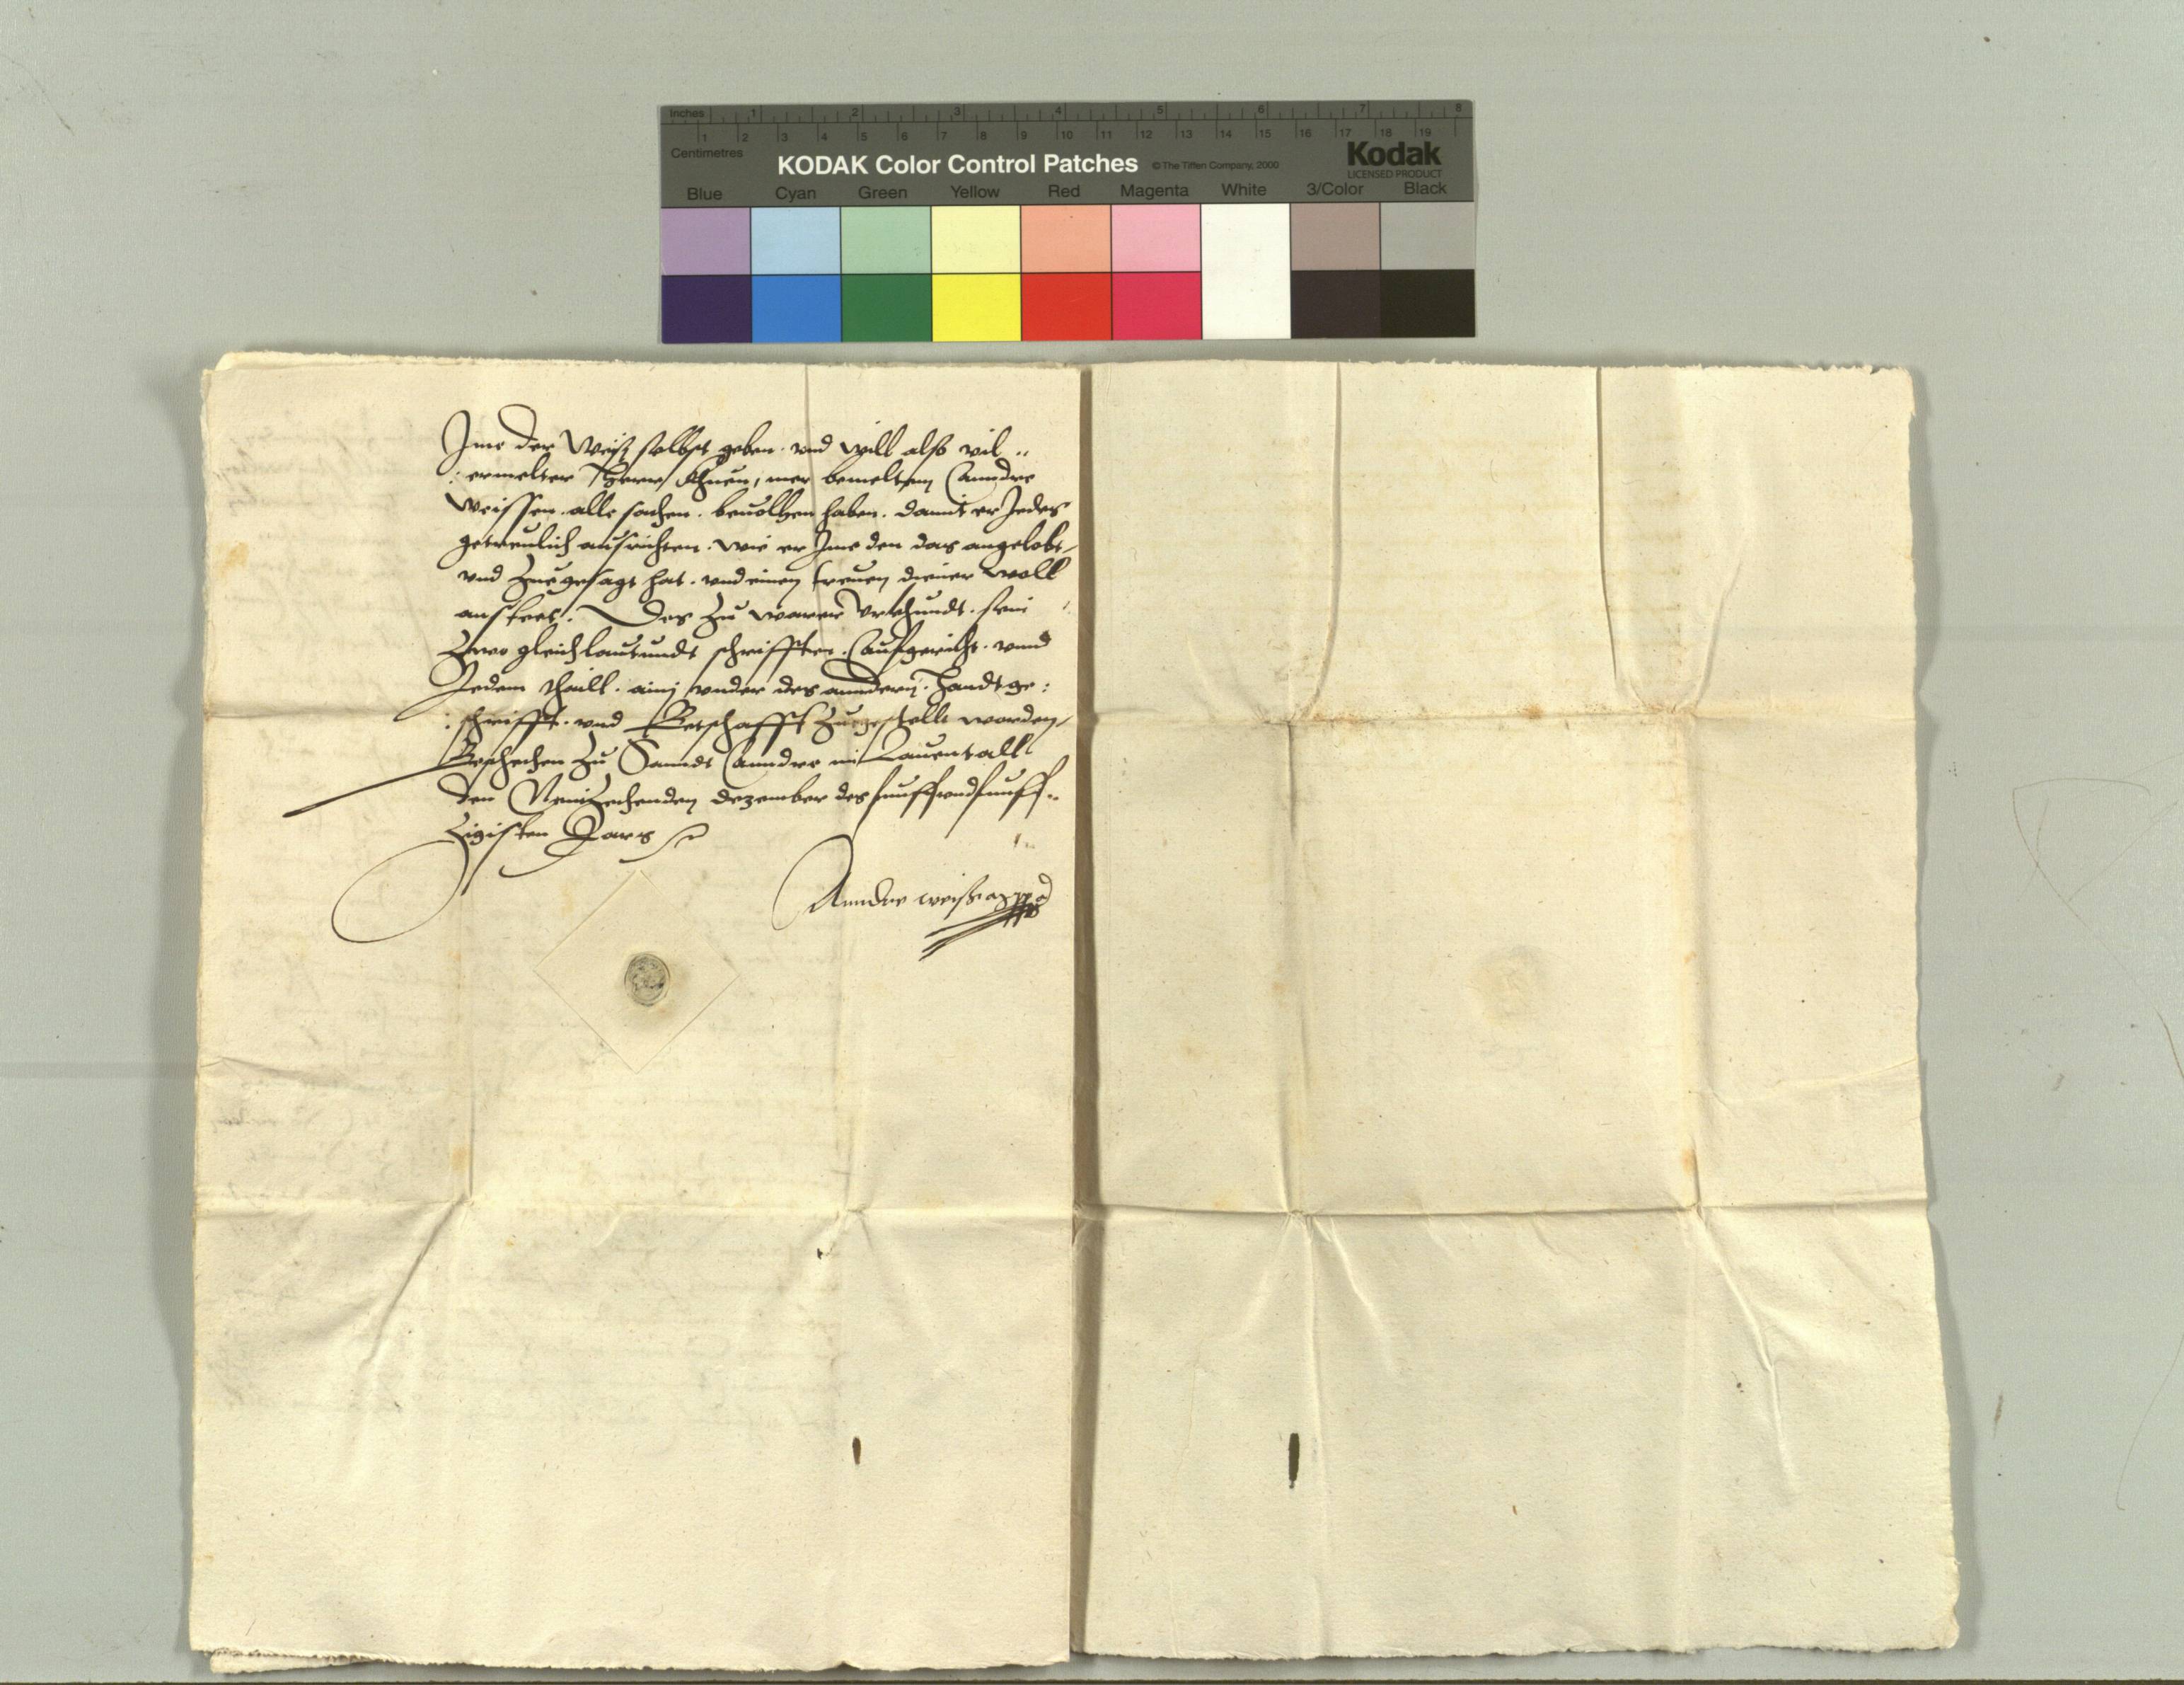 Inches 1 2 3 4 5 6 7 8
1 2 3 4 5 6 7 8 9 10 11 12 13 14 15 16 17 18 19
Centimetres
KODAK Color Control Patches © The Tiffen Company, 2000 Kodak
LICENSED PRODUCT
Blue Cyan Green Yellow Red Magenta White 3/Color Black
Ime der Weiß selbst geben. vnd will also vil..
: ermelter Herr Khuen, mer bemeltem Anndre
Weissen. alle sachen. beuolhen haben. damit er Jedes
getreulich ausrichten. wie er Ime den das angelobt
vnd zuegesagt hat. vnd einem treuen diener woll
ansteet. Des zu warer Vrkhundt. sein
Zwo gleichlautundt schrifften. Aufgericht. vnnd
Jedem thaill. aini vnder des anndern. Handtge:
: schrifft. vnd Betschafft zuegestellt worden
Beschechen zu Sanndt Anndre im Lauentall
den Neinzechenden dezember des funffvndfunff..
Zigisten Jars
Anndre weiß